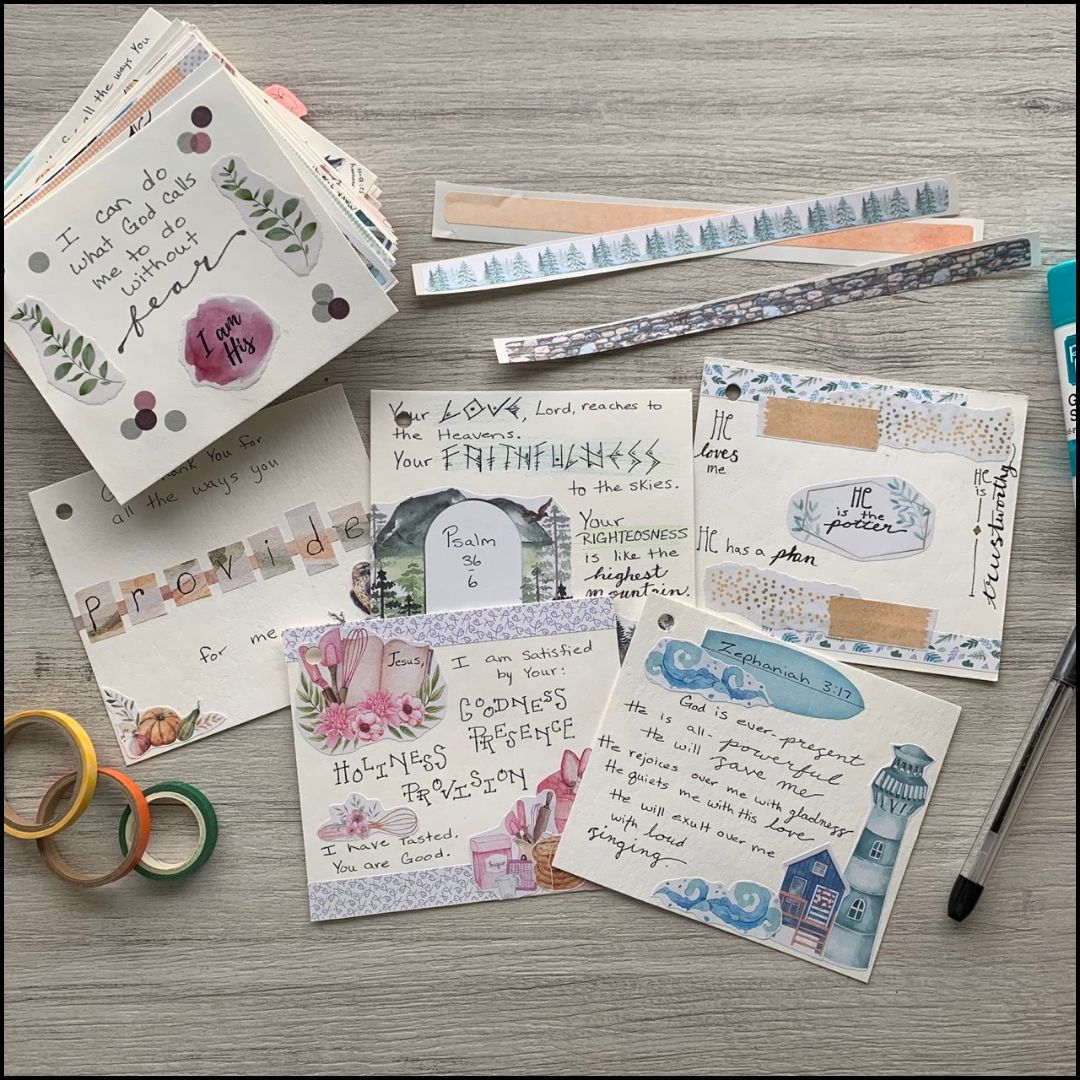 all the ways You
I can do
what God calls
me to do
without
fear
I am
His
Thank You for
all the ways you
Provide
for me
Your LOVE, Lord, reaches to
the Heavens.
Your FAITHFULNESS
to the skies.
Psalm
36
6
Your
RIGHTEOSNESS
is like the
highest
mountain.
He
loves
me
HE
is the
potter
He has a plan
HE
is
trustworthy
Jesus,
I am satisfied
by Your:
GOODNESS
PRESENCE
HOLINESS
PROVISION
I have Tasted.
You are Good.
Sugar
Zephaniah 3:17
God is ever-present
He is all-powerful
He will save me
He rejoices over me with gladness
He quiets me with His love
He will exult over me
with loud
singing.